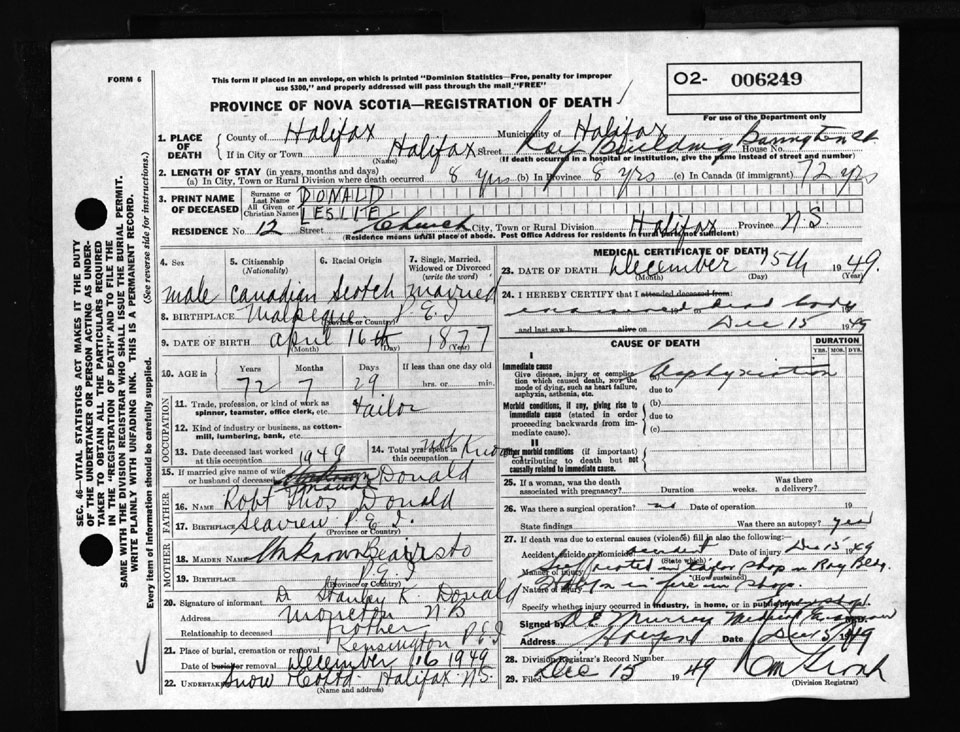 FORM 6
This form if placed in an envelope, on which is printed "Dominion Statistics—Free, penalty for improper
use $300," and properly addressed will pass through the mail "FREE"
O2- 006249
For use of the Department only
PROVINCE OF NOVA SCOTIA—REGISTRATION OF DEATH
1. PLACE OF DEATH
County of Halifax Municipality of Halifax
If in City or Town Halifax Street Roy Building Barrington St House No.
(Name) (If death occurred in a hospital or institution, give the name instead of street and number)
2. LENGTH OF STAY (in years, months and days)
(a) In City, Town or Rural Division where death occurred 8 yrs (b) In Province 8 yrs (c) In Canada (if immigrant) 72 yrs
3. PRINT NAME OF DECEASED
Surname or Last Name DONALD
All Given or Christian Names LESLIE
RESIDENCE No. 12 Street Church City, Town or Rural Division Halifax Province N.S
(Residence means usual place of abode. Post Office Address for residents in rural parts not sufficient)
4. Sex
5. Citizenship (Nationality)
6. Racial Origin
7. Single, Married, Widowed or Divorced (write the word)
male Canadian Scotch married
8. BIRTHPLACE Malpeque P.E.I
(Province or Country)
9. DATE OF BIRTH April 16th 1877
(Month) (Day) (Year)
10. AGE in Years Months Days If less than one day old
72 7 29 hrs. or min.
OCCUPATION
11. Trade, profession, or kind of work as spinner, teamster, office clerk, etc. Tailor
12. Kind of industry or business, as cotton-mill, lumbering, bank, etc.
13. Date deceased last worked at this occupation 1949
14. Total yrs. spent in this occupation not Known
15. If married give name of wife or husband of deceased Donald
FATHER
16. NAME Robt Thos Donald
17. BIRTHPLACE Seaview P.E.I.
MOTHER
18. MAIDEN NAME Unknown
19. BIRTHPLACE P.E.I
(Province or Country)
20. Signature of informant Dr Stanley K Donald
Address Moncton NB
Relationship to deceased brother
21. Place of burial, cremation or removal Kensington P.E.I
Date of burial or removal December 16 1949
22. Undertaker Snow & Co Ltd. Halifax N.S.
(Name and address)
MEDICAL CERTIFICATE OF DEATH
23. DATE OF DEATH December 15th 1949.
(Month) (Day) (Year)
24. I HEREBY CERTIFY that I attended deceased from:
examined dead body
and last saw h alive on Dec 15 1949
CAUSE OF DEATH
DURATION
YRS. MOS. DYS.
I
Immediate cause
Give disease, injury or complication which caused death, NOT the mode of dying, such as heart failure, asphyxia, asthenia, etc.
(a) Asphyxiation
due to
Morbid conditions, if any, giving rise to immediate cause (stated in order proceeding backwards from immediate cause).
(b)
due to
(c)
II
Other morbid conditions (if important) contributing to death but not causally related to immediate cause.
25. If a woman, was the death associated with pregnancy? Duration weeks. Was there a delivery?
26. Was there a surgical operation? no Date of operation 19
State findings Was there an autopsy? yes
27. If death was due to external causes (violence) fill in also the following:
Accident, Suicide or Homicide accident Date of injury Dec 15 1949
(State which)
Manner of injury in tailor shop in Roy Bldg.
(How sustained)
Nature of injury in fire in shop.
Specify whether injury occurred in industry, in home, or in public place
Signed by Murray Medical Examiner M.D.
Address Halifax Date Dec 15/1949
28. Division Registrar's Record Number
29. Filed Dec 15 1949
(Division Registrar)
SEC. 46—VITAL STATISTICS ACT MAKES IT THE DUTY
OF THE UNDERTAKER OR PERSON ACTING AS UNDER-
TAKER TO OBTAIN ALL THE PARTICULARS REQUIRED
IN THE "REGISTRATION OF DEATH" AND TO FILE THE
SAME WITH THE DIVISION REGISTRAR WHO SHALL ISSUE THE BURIAL PERMIT.
WRITE PLAINLY WITH UNFADING INK. THIS IS A PERMANENT RECORD.
Every item of information should be carefully supplied. (See reverse side for instructions.)